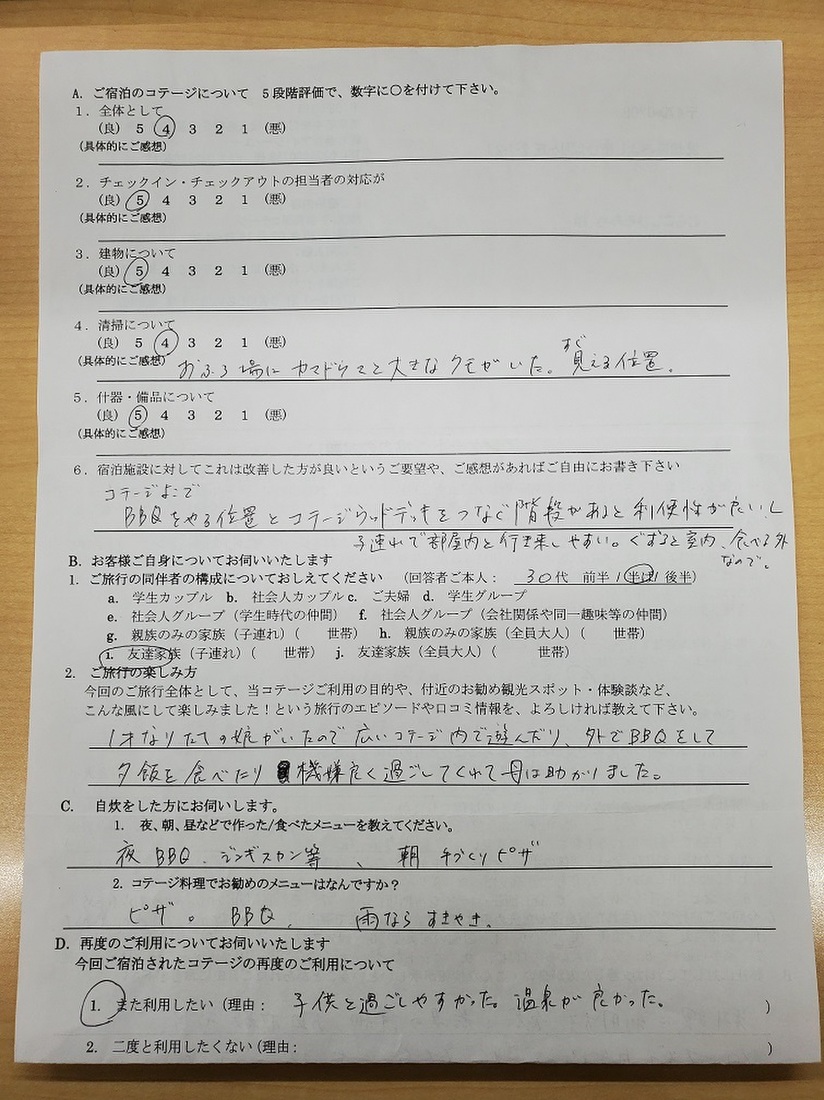 A. ご宿泊のコテージについて　5段階評価で、数字に〇を付けて下さい。
1．全体として
(良)　5　4　3　2　1　(悪)
(具体的にご感想)
2．チェックイン・チェックアウトの担当者の対応が
(良)　5　4　3　2　1　(悪)
(具体的にご感想)
3．建物について
(良)　5　4　3　2　1　(悪)
(具体的にご感想)
4．清掃について
(良)　5　4　3　2　1　(悪)
すぐ
(具体的にご感想)　おふろ場に カマドウマと大きなクモがいた。見える位置。
5．什器・備品について
(良)　5　4　3　2　1　(悪)
(具体的にご感想)
6．宿泊施設に対してこれは改善した方が良いというご要望や、ご感想があればご自由にお書き下さい
コテージよこで
BBQをやる位置とコテージウッドデッキをつなぐ階段があると利便性が良いし
子連れで部屋内と行き来しやすい。ぐずると室内、食べる外
なので。
B. お客様ご自身についてお伺いいたします
1. ご旅行の同伴者の構成についておしえてください　(回答者ご本人：　30代　前半 / 半ば / 後半)
a.　学生カップル　b.　社会人カップル c.　ご夫婦　d.　学生グループ
e.　社会人グループ（学生時代の仲間）　f.　社会人グループ（会社関係や同一趣味等の仲間）
g.　親族のみの家族（子連れ）(　　世帯)　h.　親族のみの家族（全員大人）(　　世帯)
i.　友達家族（子連れ）(　　世帯)　j.　友達家族（全員大人）(　　世帯)
2. ご旅行の楽しみ方
今回のご旅行全体として、当コテージご利用の目的や、付近のお勧め観光スポット・体験談など、
こんな風にして楽しみました！という旅行のエピソードや口コミ情報を、よろしければ教えて下さい。
1才なりたての娘がいたので広いコテージ内で遊んだり、外でBBQをして
夕飯を食べたり 機嫌良く過ごしてくれて母は助かりました。
C.　自炊をした方にお伺いします。
1.　夜、朝、昼などで作った/食べたメニューを教えてください。
夜 BBQ、ジンギスカン等、朝 手づくりピザ
2. コテージ料理でお勧めのメニューはなんですか？
ピザ。BBQ、雨なら すきやき。
D. 再度のご利用についてお伺いいたします
今回ご宿泊されたコテージの再度のご利用について
1. また利用したい (理由：　子供と過ごしやすかった。温泉が良かった。　)
2. 二度と利用したくない (理由：　)